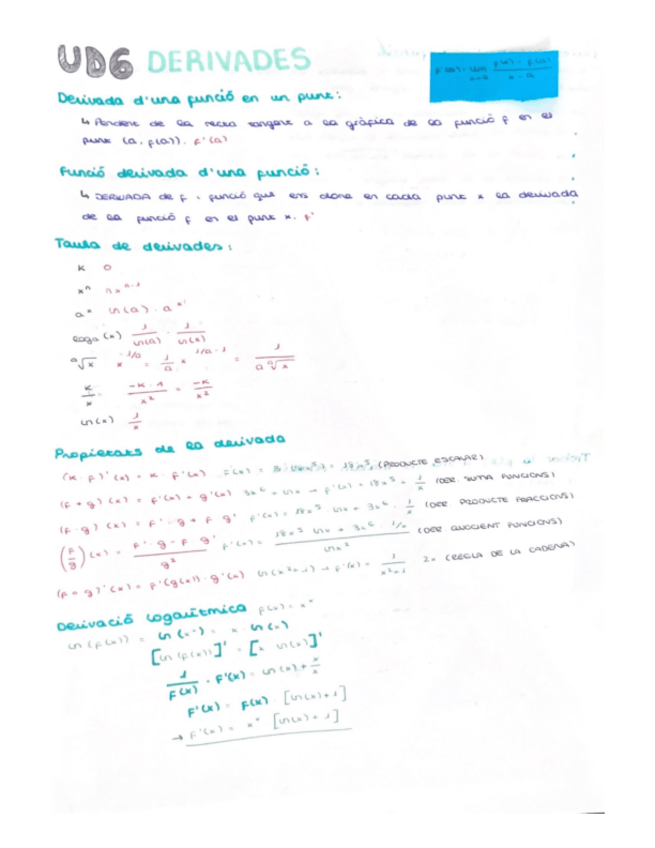 UD6 DERIVADES
F'(a) = lim x→a F(x) - F(a) / x - a
Derivada d'una funció en un punt:
↳ Pendent de la recta tangent a la gràfica de la funció f en el
punt (a, f(a)). f'(a)
Funció derivada d'una funció:
↳ DERIVADA de f, funció que ens dona en cada punt x la derivada
de la funció f en el punt x. f'
Taula de derivades:
K 0
xⁿ n x^(n-1)
ln(x) 1/x
Propietats de la derivada
(K·f)'(x) = K·f'(x) (PRODUCTE ESCALAR)
(f + g)(x) = f'(x) + g'(x) 3x⁶ + ln x → f'(x) = 18x⁵ + 1/x (DER. SUMA FUNCIONS)
(f·g)(x) = f'·g + f·g' f'(x) = 18x⁵ ln x + 3x⁶ · 1/x (DER PRODUCTE FRACCIONS)
(f/g)(x) = f'·g - f·g' / g² f'(x) = 18x⁵ ln x + 3x⁶ · 1/x / ln x² (DER QUOCIENT FUNCIONS)
(f∘g)'(x) = f'(g(x))·g'(x) ln(x²+1) → f'(x) = 1/x²+1 2x (REGLA DE LA CADENA)
Derivació logarítmica f(x) = xˣ
ln(f(x)) = ln(xˣ) = x · ln(x)
[ln(f(x))]' = [x ln(x)]'
1/F(x) · F'(x) = ln(x) + x/x
F'(x) = F(x) · [ln(x)+1]
→ F'(x) = xˣ [ln(x) + 1]